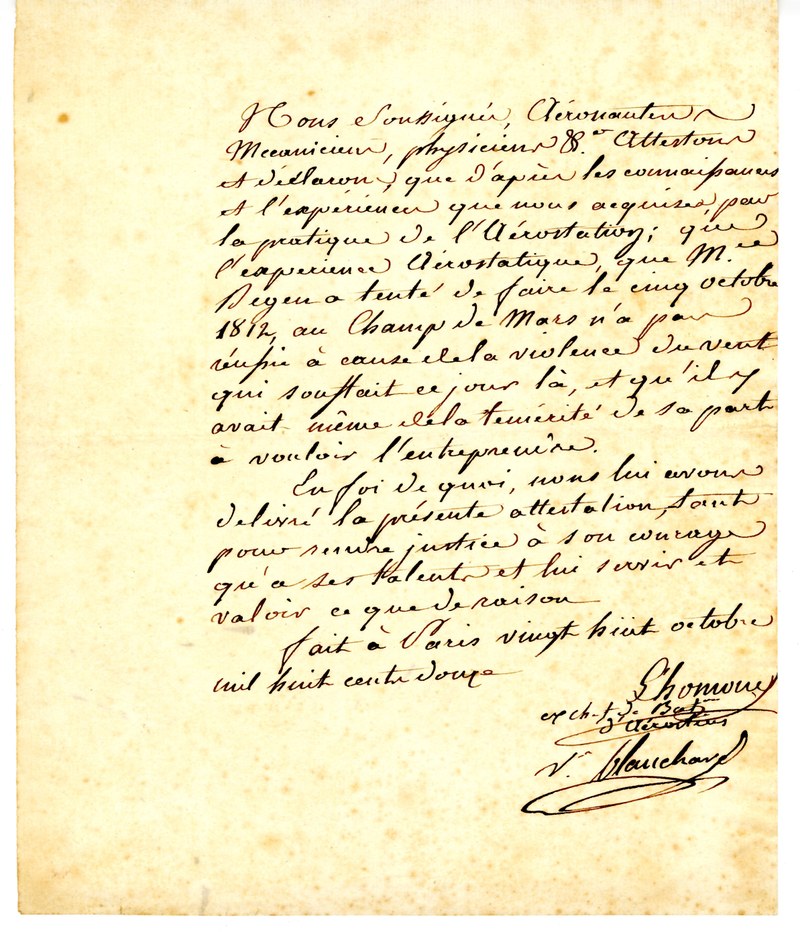 Nous Soussignés, Aéronautes
Mecaniciens, physiciens &.a Attestons
et déclarons, que d'après les connaissances
et l'expérience que nous acquises par
la pratique de l'Aérostation; que
l'experience Aérostatique, que M.
Degen a tenté de faire le cinq octobre
1812, au Champ de Mars n'a pas
réussie à cause de la violence du vent
qui soufflait ce jour là, et qu'il y
avait même de la temérité de sa part
à vouloir l'entreprendre.
En foi de quoi, nous lui avons
delivré la présente attestation, tant
pour rendre justice à son courage
qu'a ses talents et lui servir et
valoir ce que de raison
fait à Paris vingt huit octobre
mil huit cents douze
Lhomond
ex ch-f de Bat.on
d'Aérostiers
V.e Blanchard